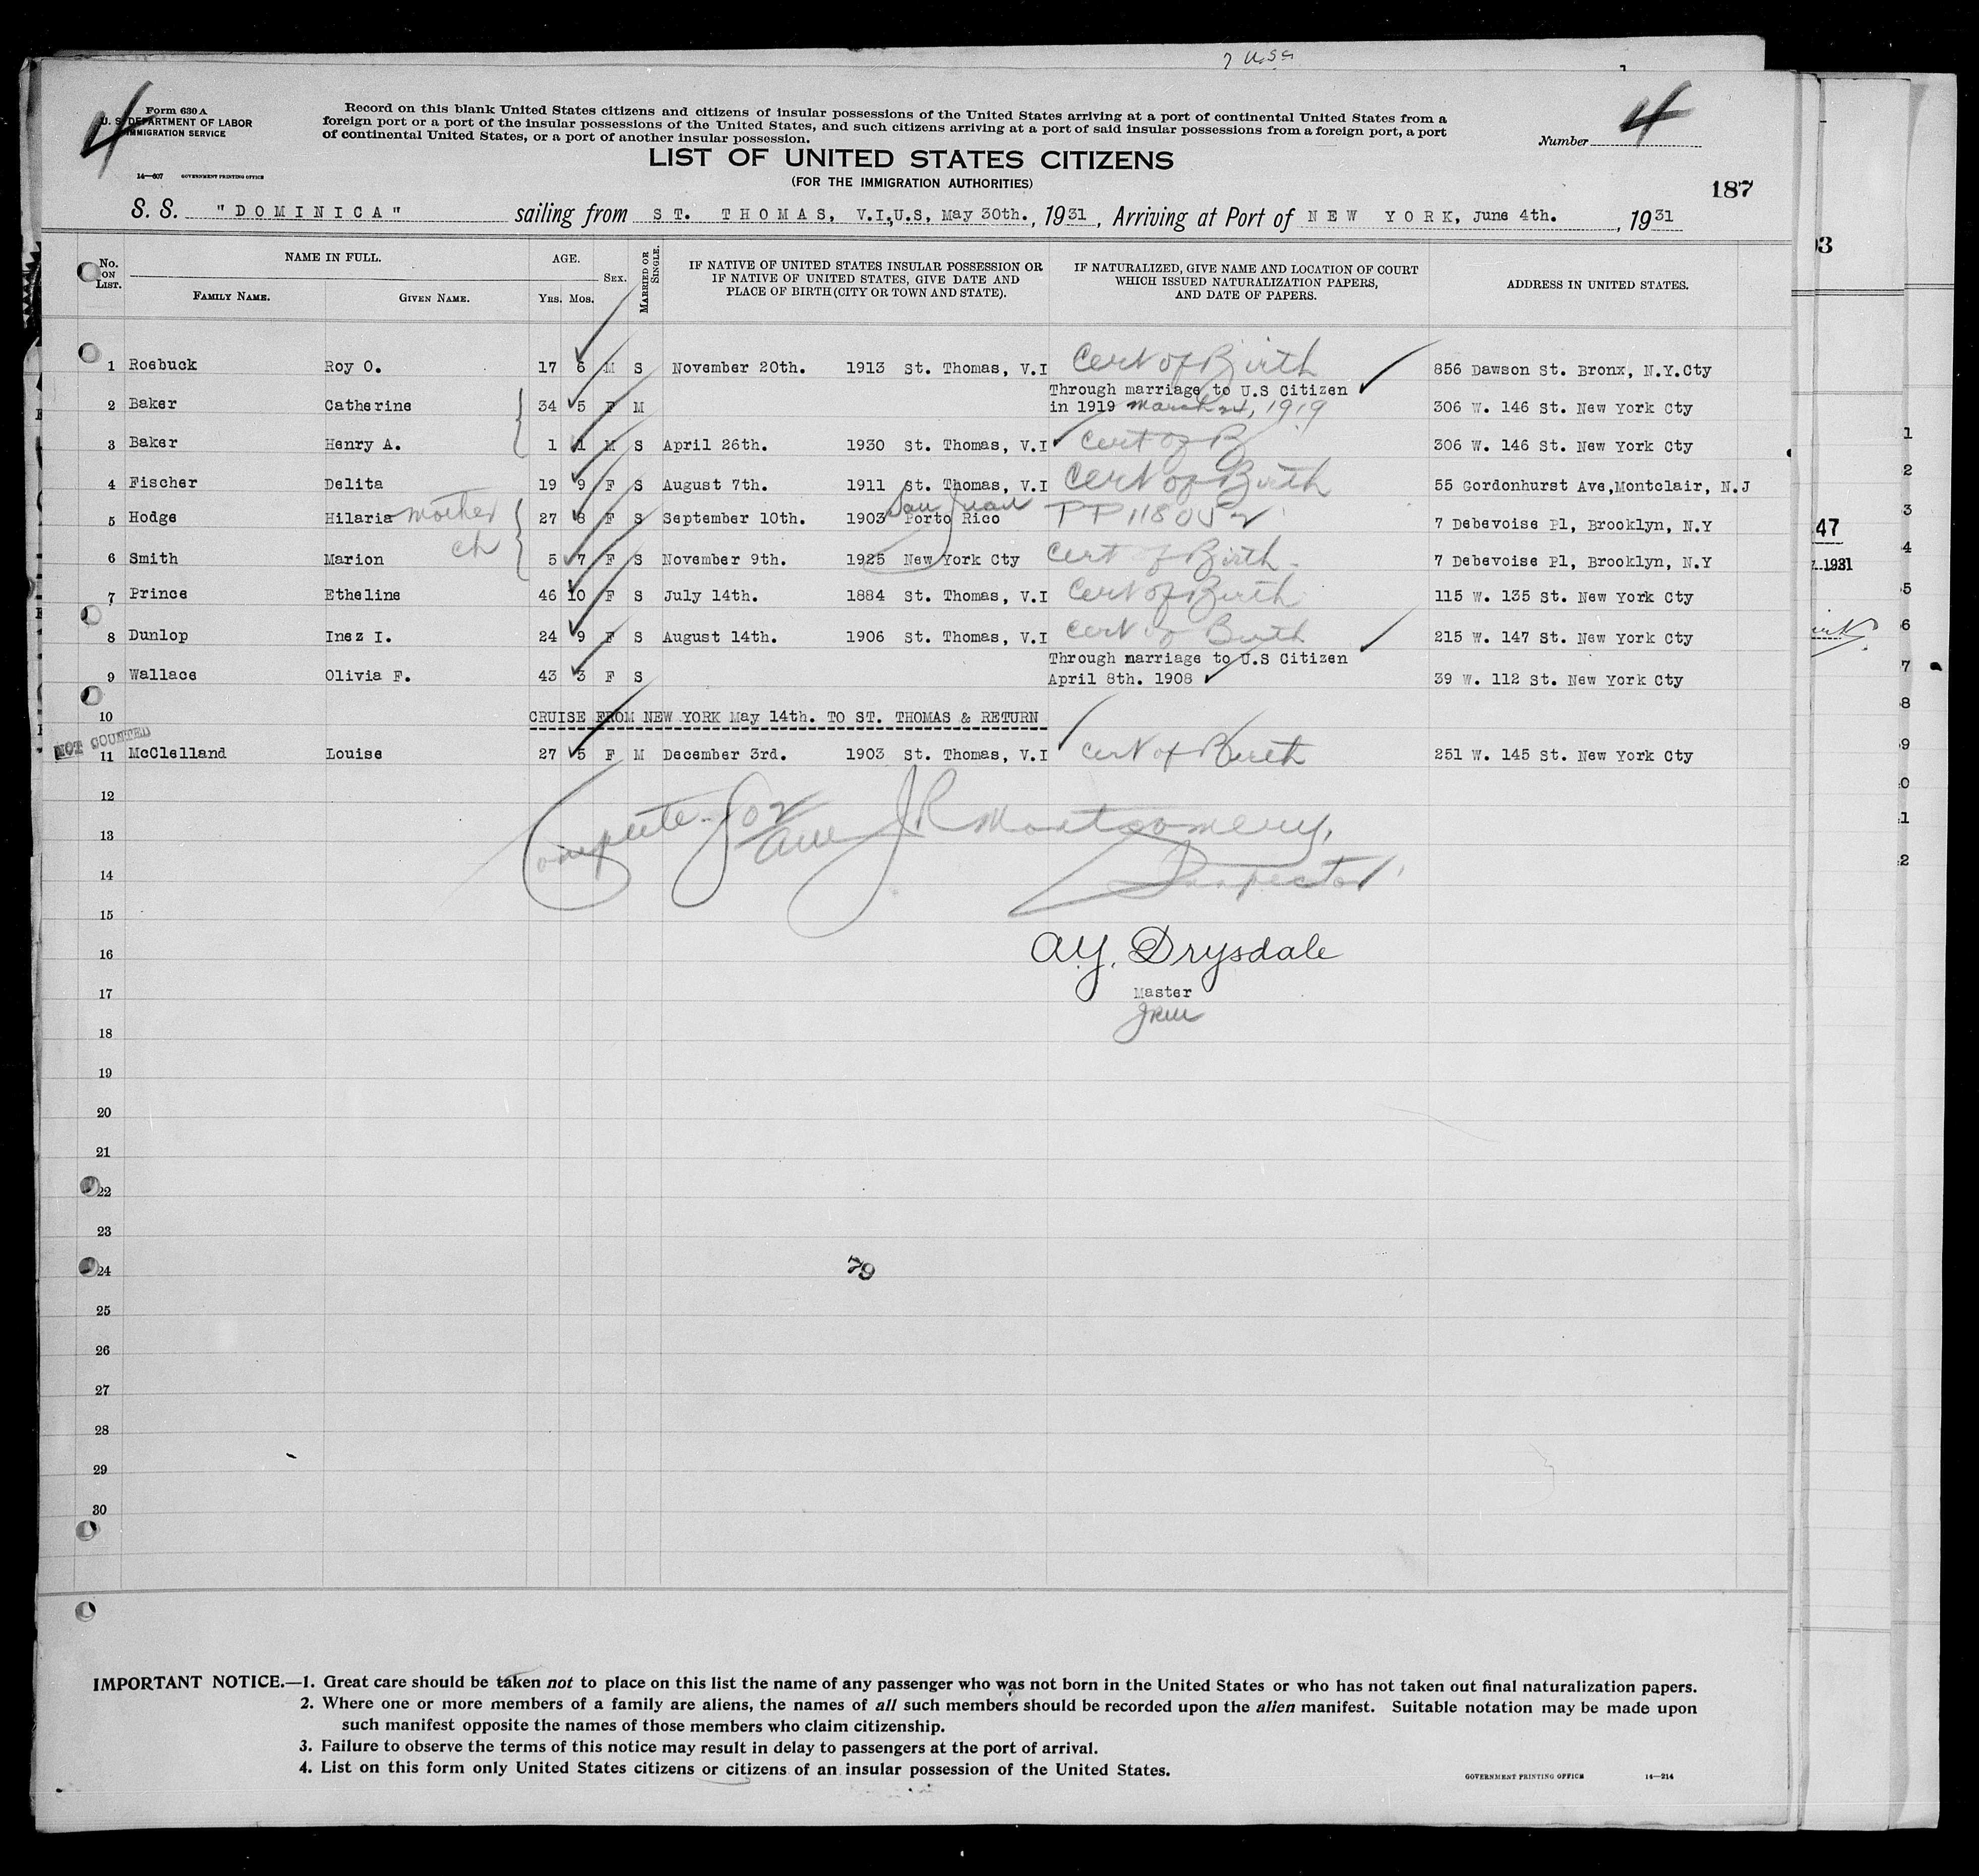 7 U.S.C
4
Form 630 A
U. S. DEPARTMENT OF LABOR
IMMIGRATION SERVICE
14—607 GOVERNMENT PRINTING OFFICE
Record on this blank United States citizens and citizens of insular possessions of the United States arriving at a port of continental United States from a
foreign port or a port of the insular possessions of the United States, and such citizens arriving at a port of said insular possessions from a foreign port, a port
of continental United States, or a port of another insular possession.
Number 4
LIST OF UNITED STATES CITIZENS
(FOR THE IMMIGRATION AUTHORITIES)
187
S. S. "DOMINICA" sailing from ST. THOMAS, V.I,U.S, May 30th., 1931, Arriving at Port of NEW YORK, June 4th., 1931
No. ON LIST. NAME IN FULL. FAMILY NAME. GIVEN NAME. AGE. YRS. MOS. SEX. MARRIED OR SINGLE. IF NATIVE OF UNITED STATES INSULAR POSSESSION OR IF NATIVE OF UNITED STATES, GIVE DATE AND PLACE OF BIRTH (CITY OR TOWN AND STATE). IF NATURALIZED, GIVE NAME AND LOCATION OF COURT WHICH ISSUED NATURALIZATION PAPERS, AND DATE OF PAPERS. ADDRESS IN UNITED STATES.
1 Roebuck Roy O. 17 6 M S November 20th. 1913 St. Thomas, V.I Cert of Birth 856 Dawson St. Bronx, N.Y.Cty
Through marriage to U.S Citizen
2 Baker Catherine 34 5 F M in 1919 March 24, 1919 306 W. 146 St. New York Cty
3 Baker Henry A. 1 1 M S April 26th. 1930 St. Thomas, V.I Cert of B 306 W. 146 St. New York Cty
4 Fischer Delita 19 9 F S August 7th. 1911 St. Thomas, V.I Cert of Birth 55 Gordonhurst Ave,Montclair, N.J
San Juan
5 Hodge Hilaria mother 27 8 F S September 10th. 1903 Porto Rico PP 7 Debevoise Pl, Brooklyn, N.Y
ch
6 Smith Marion 5 7 F S November 9th. 1925 New York Cty Cert of Birth 7 Debevoise Pl, Brooklyn, N.Y
7 Prince Etheline 46 10 F S July 14th. 1884 St. Thomas, V.I Cert of Birth 115 W. 135 St. New York Cty
8 Dunlop Inez I. 24 9 F S August 14th. 1906 St. Thomas, V.I Cert of Birth 215 W. 147 St. New York Cty
Through marriage to U.S Citizen
9 Wallace Olivia F. 43 3 F S April 8th. 1908 39 W. 112 St. New York Cty
10 CRUISE FROM NEW YORK May 14th. TO ST. THOMAS & RETURN
NOT COUNTED
11 McClelland Louise 27 5 F M December 3rd. 1903 St. Thomas, V.I Cert of Birth 251 W. 145 St. New York Cty
12
13 Complete for JR Montgomery,
14 Inspector
15
16 A.Y. Drysdale
17 Master
18 JRM
19
20
21
22
23
24 79
25
26
27
28
29
30
IMPORTANT NOTICE.—1. Great care should be taken not to place on this list the name of any passenger who was not born in the United States or who has not taken out final naturalization papers.
2. Where one or more members of a family are aliens, the names of all such members should be recorded upon the alien manifest. Suitable notation may be made upon
such manifest opposite the names of those members who claim citizenship.
3. Failure to observe the terms of this notice may result in delay to passengers at the port of arrival.
4. List on this form only United States citizens or citizens of an insular possession of the United States.
GOVERNMENT PRINTING OFFICE 14—214